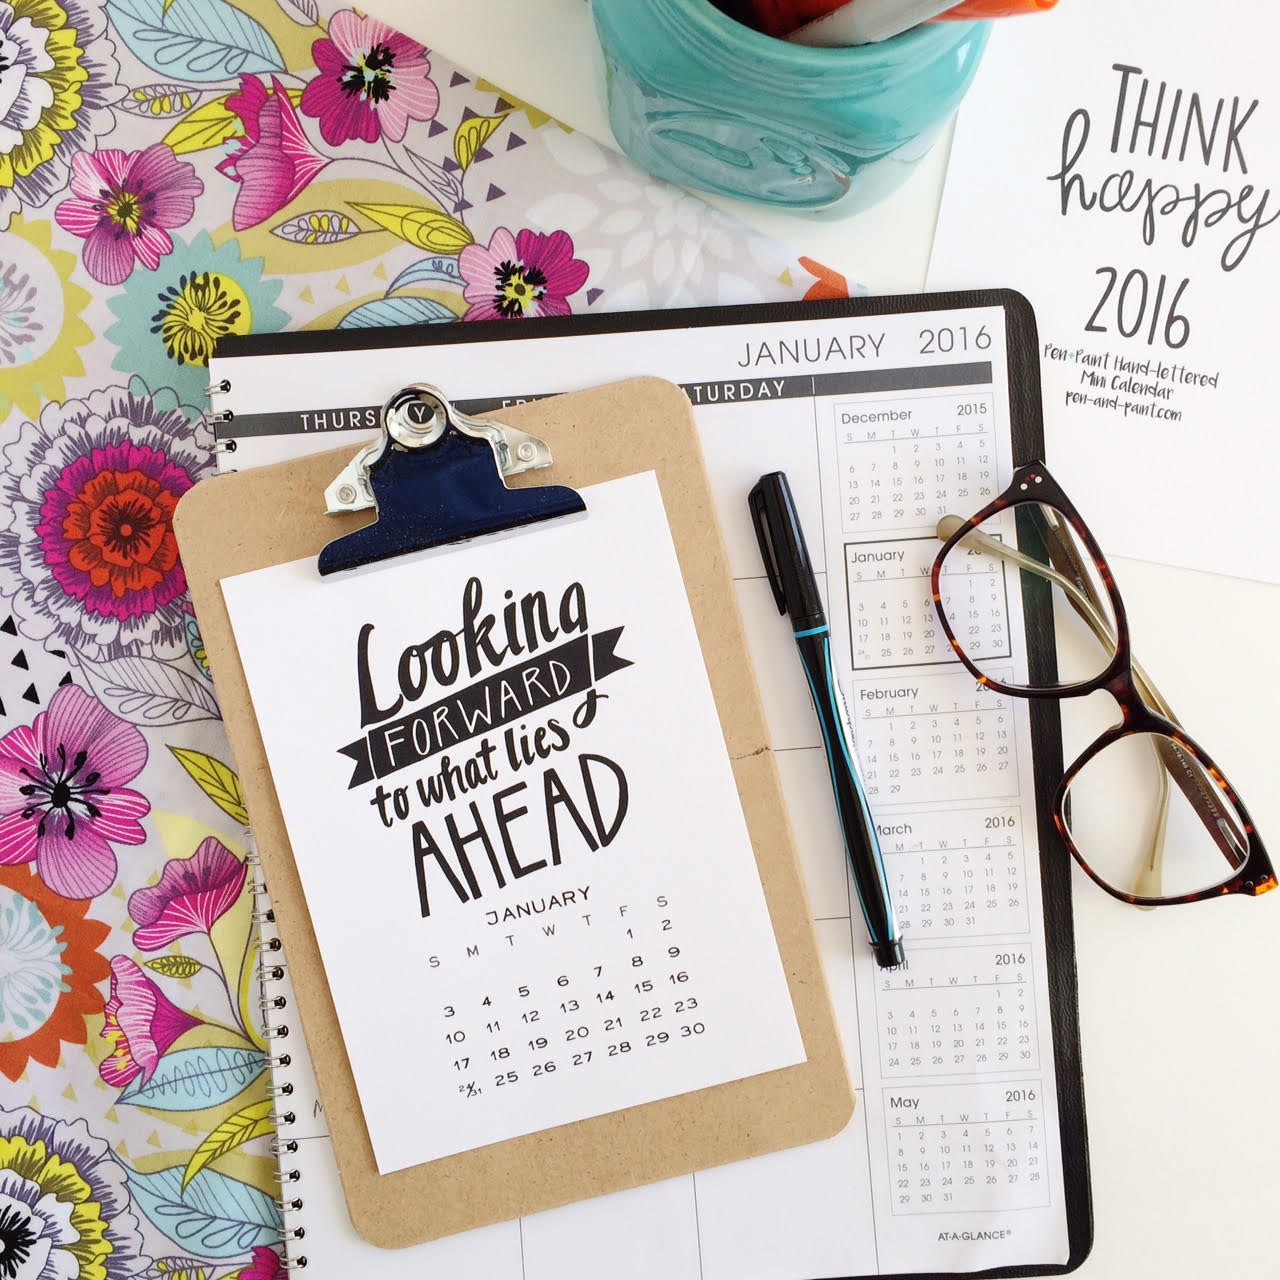 THINK
happy
2016
Pen+Paint Hand-lettered
Mini Calendar
pen-and-paint.com
JANUARY 2016
THURS Y
Looking
FORWARD
to what lies
AHEAD
JANUARY
S M T W T F S
1 2
3 4 5 6 7 8 9
10 11 12 13 14 15 16
17 18 19 20 21 22 23
24/31 25 26 27 28 29 30
December 2015
S M T W T F S
1 2 3 4 5
6 7 8 9 10 11 12
13 14 15 16 17 18 19
20 21 22 23 24 25 26
27 28 29 30 31
January
S M T W T F S
1 2
3 4 5 6
10 11 12 13 14 15 16
17 18 19 20 21 22 23
25 26 27 28 29 30
February
S M T W T F S
1 2 3 4 5 6
7 8 9 10 11 12 13
14 15 16 17 18 19 20
21 22 23 24 25 26 27
28 29
March 2016
M T W T F S
1 2 3 4 5
7 8 9 10 11 12
14 15 16 17 18 19
21 22 23 24 25 26
28 29 30 31
April 2016
S M T W T F S
1 2
3 4 5 6 7 8 9
10 11 12 13 14 15 16
17 18 19 20 21 22 23
24 25 26 27 28 29 30
May 2016
S M T W T F S
1 2 3 4 5 6 7
8 9 10 11 12 13 14
15 16 17 18 19 20 21
22 23 24 25 26 27 28
29 30 31
AT-A-GLANCE®